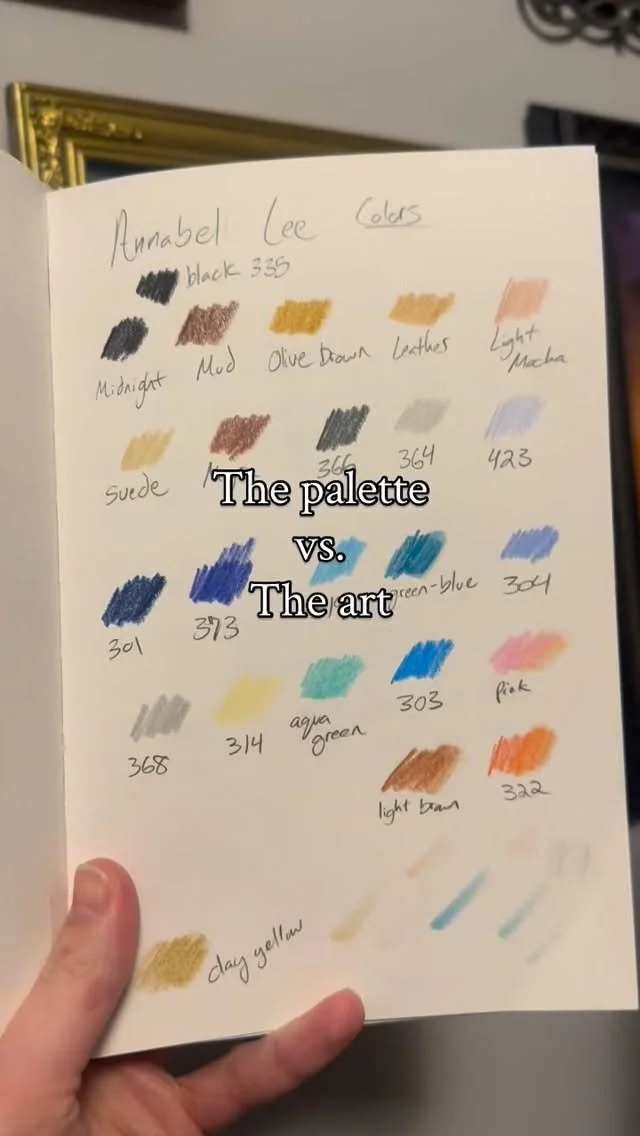 Annabel Lee Colors
black 335
Midnight Mud Olive brown Leather Light Mocha
suede 366 364 423
The palette
vs.
The art
301 373 green-blue 304
368 314 aqua green 303 pink
light brown 322
clay yellow